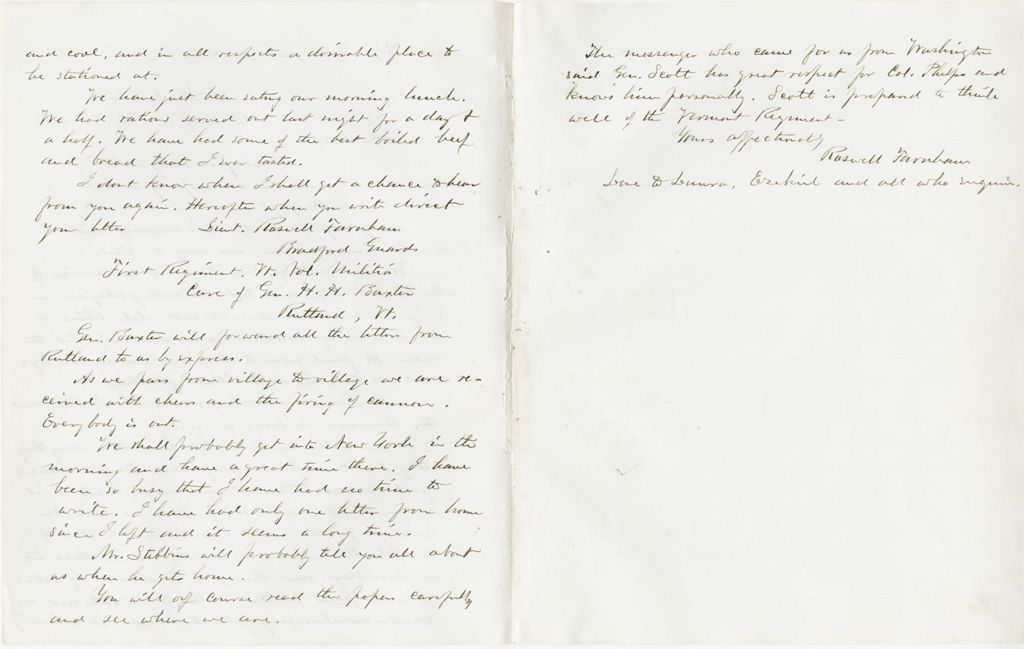 and cool, and in all respects a desirable place to
be stationed at.
We have just been eating our morning lunch.
We had rations served out last night for a day &
a half. We have had some of the best boiled beef
and bread that I ever tasted.
I dont know when I shall get a chance to hear
from you again. Hereafter when you write direct
your letter Lieut. Roswell Farnham
Bradford Guards
First Regiment, Vt. Vol. Militia
Care of Gen. H. H. Baxter
Rutland, Vt.
Gen. Baxter will forward all the letters from
Rutland to us by express.
As we pass from village to village we are re-
ceived with cheers and the firing of cannon.
Everybody is out.
We shall probably get into New York in the
morning and have a great time there. I have
been so busy that I have had no time to
write. I have had only one letter from home
since I left and it seems a long time.
Mr. Stebbins will probably tell you all about
us when he gets home.
You will of course read the papers carefully
and see where we are.
The messenger who came for us from Washington
said Gen. Scott has great respect for Col. Phelps and
knows him personally. Scott is prepared to think
well of the Vermont Regiment -
Yours affectionately
Roswell Farnham
Love to Laura, Ezekiel and all who enquire.